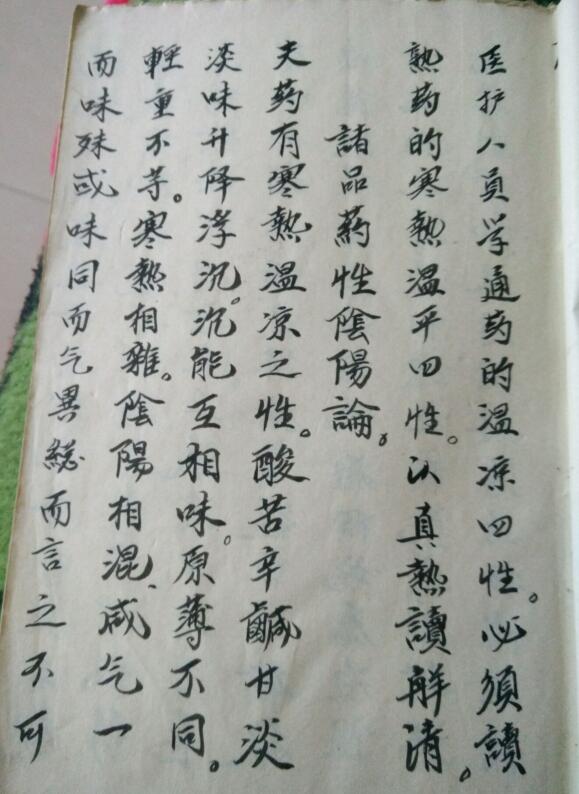 医护人員学通药的温凉四性。必須讀
熟药的寒熱温平四性。认真熱讀解清。
諸品葯性陰陽論。
夫药有寒熱温凉之性。酸苦辛鹹甘淡
淡味升降浮沉。沉能互相味。原薄不同。
輕重不等。寒熱相雜。陰陽相混、咸气一
而味殊或味同而气異総而言之不可